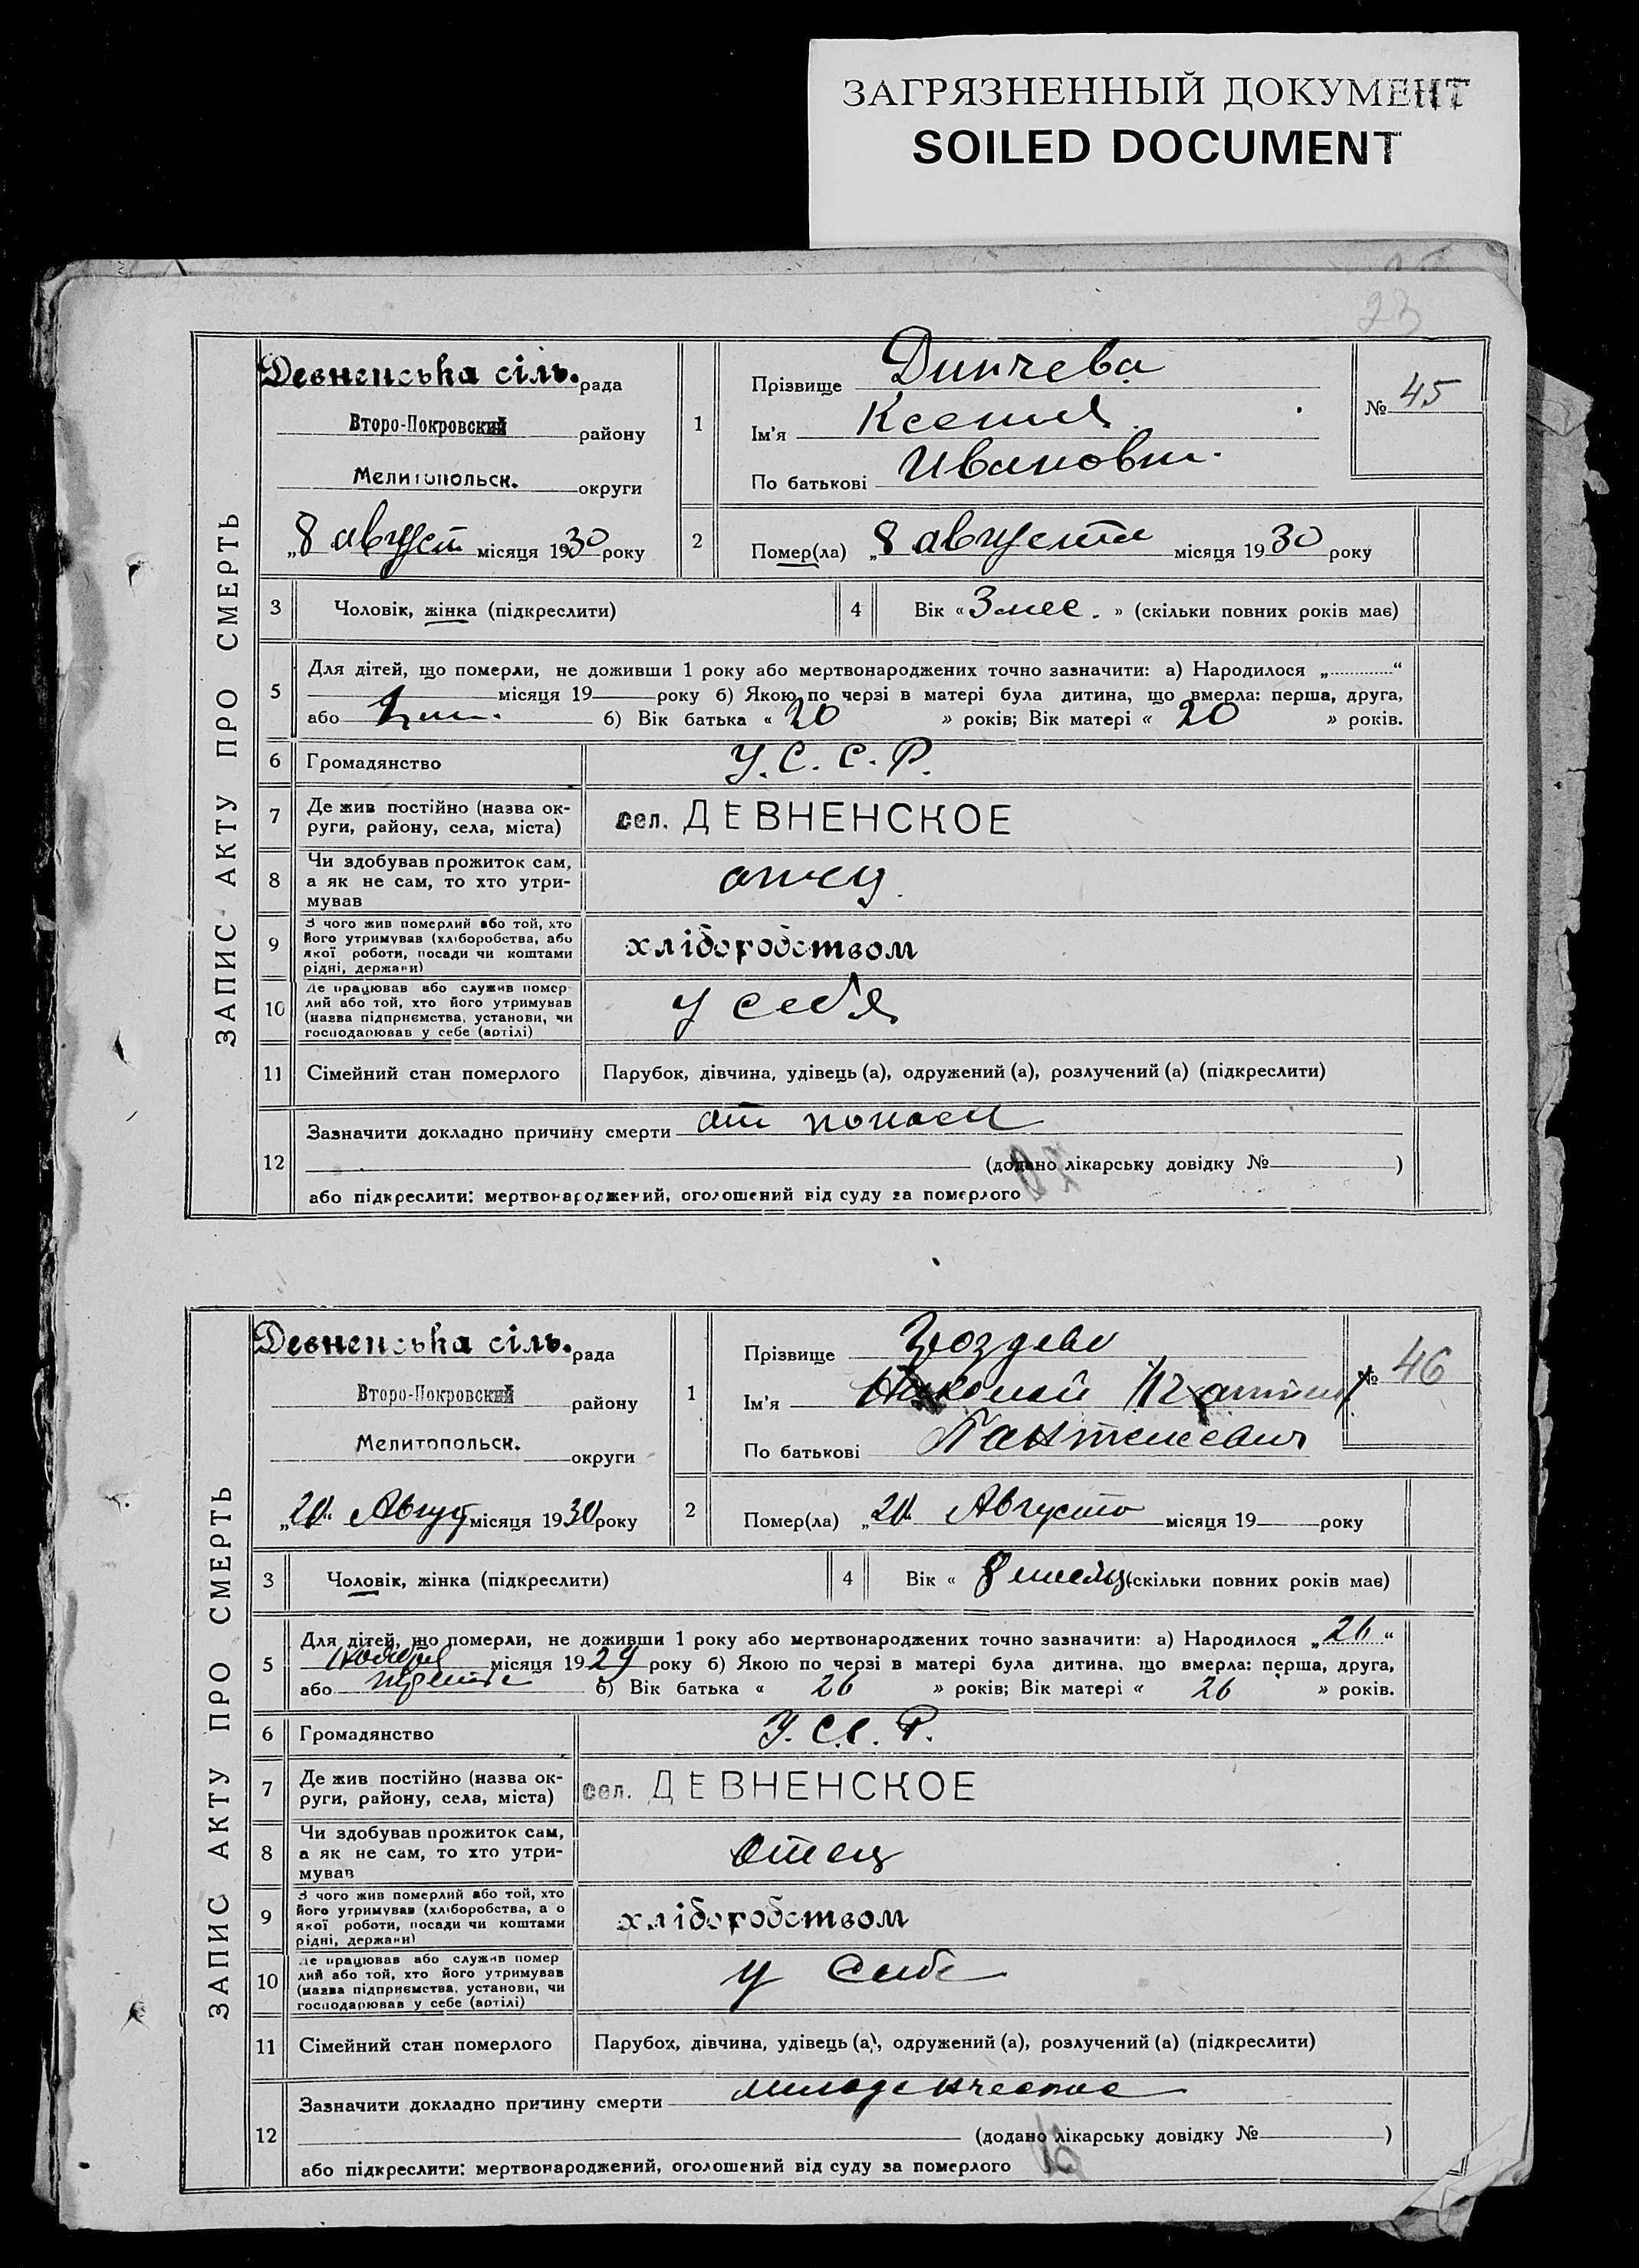 ЗАГРЯЗНЕННЫЙ ДОКУМЕНТ
SOILED DOCUMENT
23
ЗАПИС АКТУ ПРО СМЕРТЬ
Девненська сіль. рада
Второ-Покровский району
Мелитопольск. округи
„8 август місяця 1930 року
1
Прізвище Динчева
Ім'я Ксения
По батькові Ивановн.
№ 45
2
Помер(ла) „8 августа місяця 1930 року
3
Чоловік, жінка (підкреслити)
4
Вік « 3 мес. » (скільки повних років має)
5
Для дітей, що померли, не доживши 1 року або мертвонароджених точно зазначити: а) Народилося „ “
місяця 19 року б) Якою по черзі в матері була дитина, що вмерла: перша, друга,
або б) Вік батька « 20 » років; Вік матері « 20 » років.
6
Громадянство
У.С.С.Р.
7
Де жив постійно (назва ок-
руги, району, села, міста)
сел. ДЕВНЕНСКОЕ
8
Чи здобував прожиток сам,
а як не сам, то хто утри-
мував
отец
9
З чого жив померлий або той, хто
його утримував (хліборобства, або
якої роботи, посади чи коштами
рідні, держави)
хліборобством
10
Де працював або служив помер-
лий або той, хто його утримував
(назва підприємства, установи, чи
господарював у себе (артілі)
у себя
11
Сімейний стан померлого
Парубок, дівчина, удівець (а), одружений (а), розлучений (а) (підкреслити)
12
Зазначити докладно причину смерти от
(додано лікарську довідку № )
або підкреслити: мертвонароджений, оголошений від суду за померлого
ЗАПИС АКТУ ПРО СМЕРТЬ
Девненська сіль. рада
Второ-Покровский району
Мелитопольск. округи
Август місяця 1930 року
1
Прізвище Гвоздево
Ім'я Николай
По батькові Пантелеевич
№ 46
2
Помер(ла) Августа місяця 19 року
3
Чоловік, жінка (підкреслити)
4
Вік « 8 (скільки повних років має)
5
Для дітей, що померли, не доживши 1 року або мертвонароджених точно зазначити: а) Народилося „26“
Ноября місяця 1929 року б) Якою по черзі в матері була дитина, що вмерла: перша, друга,
або третье б) Вік батька « 26 » років; Вік матері « 26 » років.
6
Громадянство
У.С.С.Р.
7
Де жив постійно (назва ок-
руги, району, села, міста)
сел. ДЕВНЕНСКОЕ
8
Чи здобував прожиток сам,
а як не сам, то хто утри-
мував
Отец
9
З чого жив померлий або той, хто
його утримував (хліборобства, а о
якої роботи, посади чи коштами
рідні, держави)
хліборобством
10
Де працював або служив помер
лий або той, хто його утримував
(назва підприємства, установи, чи
господарював у себе (артілі)
у себе
11
Сімейний стан померлого
Парубок, дівчина, удівець (а), одружений (а), розлучений (а) (підкреслити)
12
Зазначити докладно причину смерти младенческое
(додано лікарську довідку № )
або підкреслити: мертвонароджений, оголошений від суду за померлого